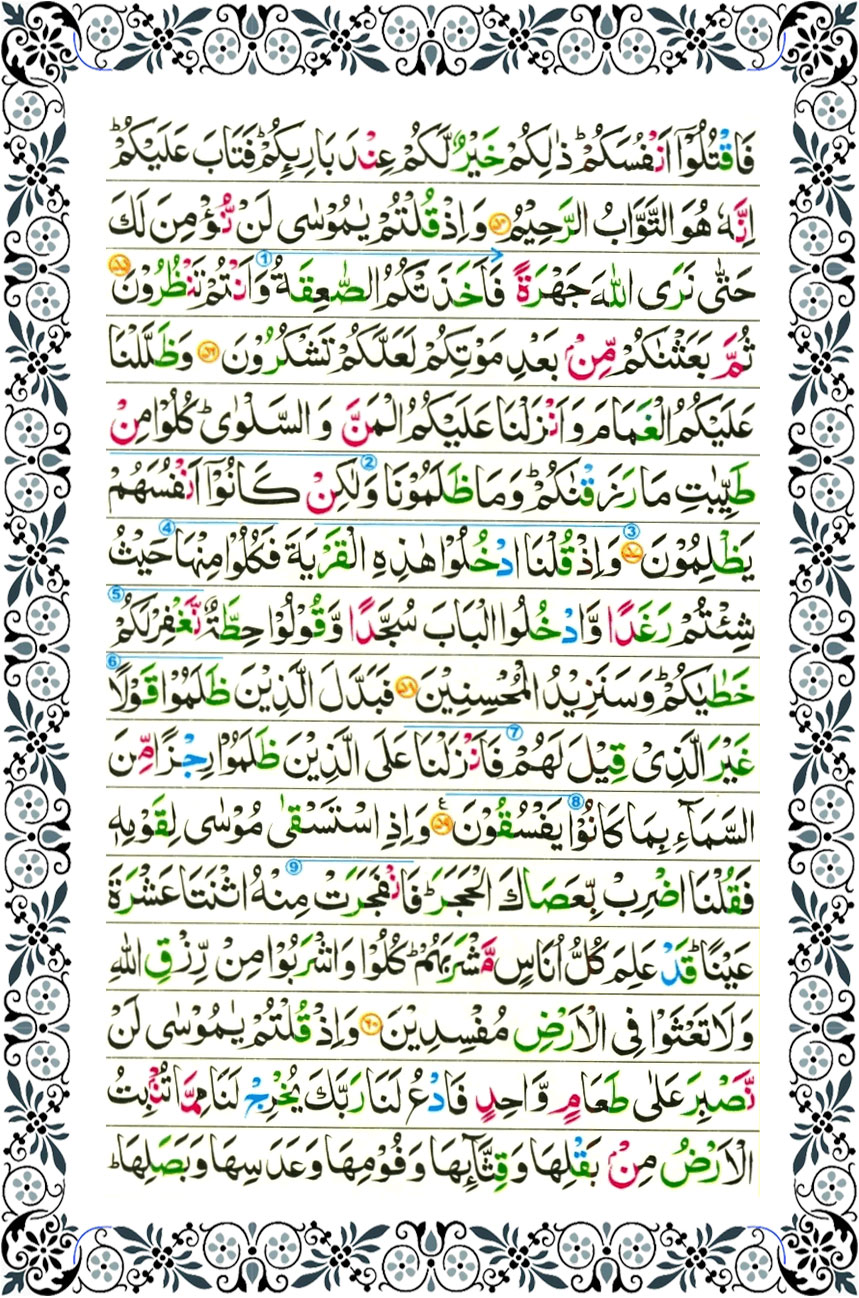 فَاقْتُلُوْۤا اَنْفُسَكُمْؕ ذٰلِكُمْ خَيْرٌ لَّكُمْ عِنْدَ بَارِىِٕكُمْؕ فَتَابَ عَلَيْكُمْؕ
اِنَّهٗ هُوَ التَّوَّابُ الرَّحِيْمُ ۵۴ وَ اِذْ قُلْتُمْ يٰمُوْسٰى لَنْ نُّؤْمِنَ لَكَ
حَتّٰى نَرَى اللّٰهَ جَهْرَةً فَاَخَذَتْكُمُ الصّٰعِقَةُ ① وَ اَنْتُمْ تَنْظُرُوْنَ ۵۵
ثُمَّ بَعَثْنٰكُمْ مِّنْۢ بَعْدِ مَوْتِكُمْ لَعَلَّكُمْ تَشْكُرُوْنَ ۵۶ وَ ظَلَّلْنَا
عَلَيْكُمُ الْغَمَامَ وَ اَنْزَلْنَا عَلَيْكُمُ الْمَنَّ وَ السَّلْوٰىؕ كُلُوْا مِنْ
طَيِّبٰتِ مَا رَزَقْنٰكُمْؕ وَ مَا ظَلَمُوْنَا ② وَ لٰكِنْ كَانُوْۤا اَنْفُسَهُمْ
يَظْلِمُوْنَ ۵۷ ③ وَ اِذْ قُلْنَا ادْخُلُوْا هٰذِهِ الْقَرْيَةَ فَكُلُوْا مِنْهَا ④ حَيْثُ
شِئْتُمْ رَغَدًا وَّ ادْخُلُوا الْبَابَ سُجَّدًا وَّ قُوْلُوْا حِطَّةٌ نَّغْفِرْ لَكُمْ ⑤
خَطٰيٰكُمْؕ وَ سَنَزِيْدُ الْمُحْسِنِيْنَ ۵۸ فَبَدَّلَ الَّذِيْنَ ظَلَمُوْا قَوْلًا ⑥
غَيْرَ الَّذِىْ قِيْلَ لَهُمْ ⑦ فَاَنْزَلْنَا عَلَى الَّذِيْنَ ظَلَمُوْا رِجْزًا مِّنَ
السَّمَآءِ بِمَا كَانُوْا ⑧ يَفْسُقُوْنَ ۵۹ع وَ اِذِ اسْتَسْقٰى مُوْسٰى لِقَوْمِهٖ
فَقُلْنَا اضْرِبْ بِّعَصَاكَ الْحَجَرَؕ ⑨ فَانْفَجَرَتْ مِنْهُ اثْنَتَا عَشْرَةَ
عَيْنًاؕ قَدْ عَلِمَ كُلُّ اُنَاسٍ مَّشْرَبَهُمْؕ كُلُوْا وَ اشْرَبُوْا مِنْ رِّزْقِ اللّٰهِ
وَ لَا تَعْثَوْا فِى الْاَرْضِ مُفْسِدِيْنَ ۶۰ وَ اِذْ قُلْتُمْ يٰمُوْسٰى لَنْ
نَّصْبِرَ عَلٰى طَعَامٍ وَّاحِدٍ فَادْعُ لَنَا رَبَّكَ يُخْرِجْ لَنَا مِمَّا تُنْۢبِتُ
الْاَرْضُ مِنْۢ بَقْلِهَا وَ قِثَّآىِٕهَا وَ فُوْمِهَا وَ عَدَسِهَا وَ بَصَلِهَاؕ